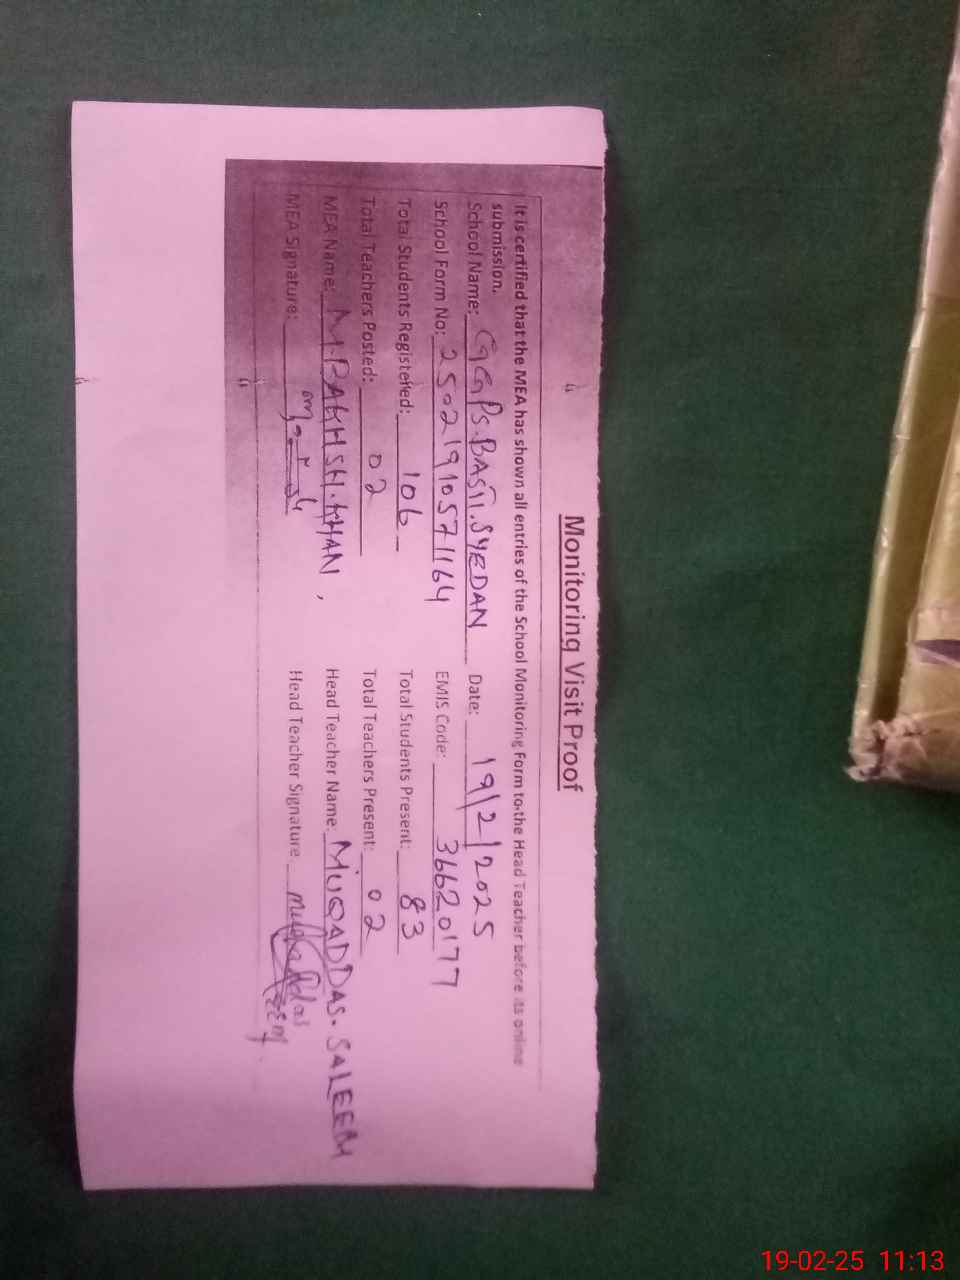 Monitoring Visit Proof
It is certified that the MEA has shown all entries of the School Monitoring Form to the Head Teacher before its online
submission.
School Name: GGPS.BASTI.SYEDAN Date: 19/2/2025
School Form No: 2502191057 1164 EMIS Code: 36620177
Total Students Registered: 106 Total Students Present: 83
Total Teachers Posted: 02 Total Teachers Present: 02
MEA Name: M.BAKHSH.KHAN, Head Teacher Name: MUQADDAS. SALEEM
MEA Signature: Head Teacher Signature:
19-02-25 11:13